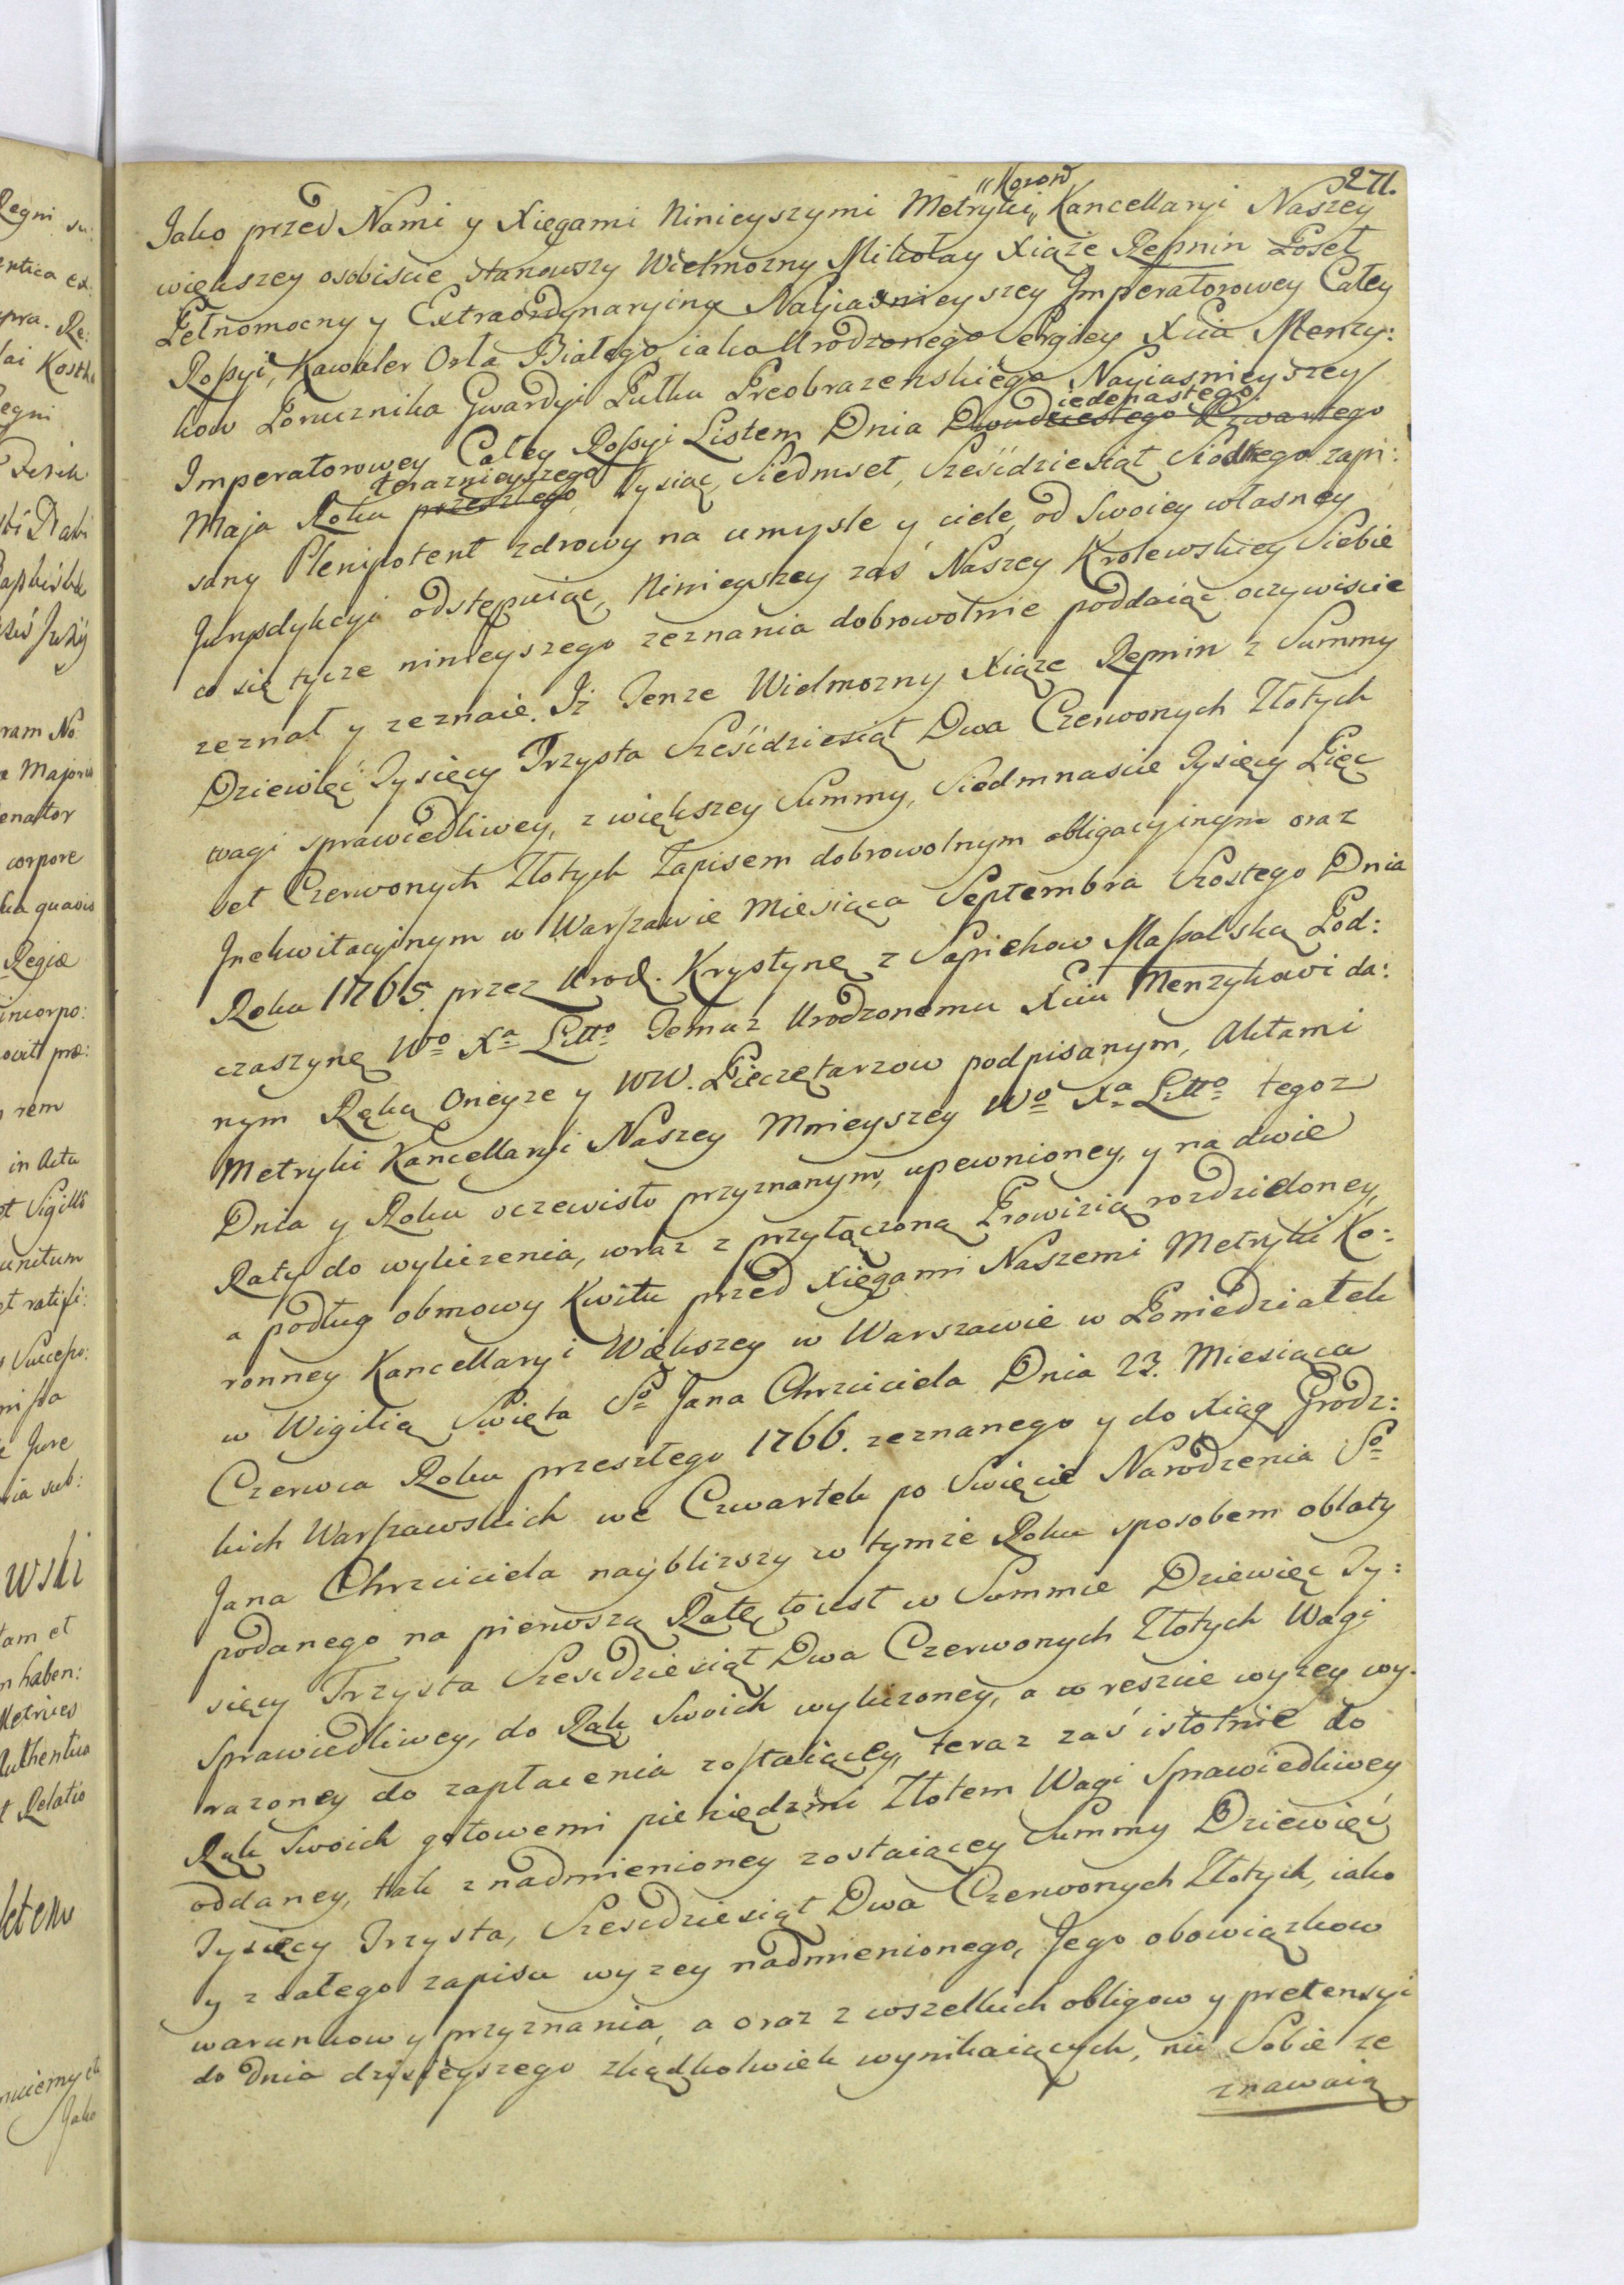 271.
Jako przed Nami y Xięgami Ninieyszymi Metryki "Koron" Kancellaryi Naszey
większey osobiscie stanowszy Wielmozny Mikołay Xiąże Repnin Poseł
Pełnomocny y Extraordynaryiny Nayiasnieyszey Imperatorowey Całey
Rossyi, Kawaler Orła Białego, iako Urodzonego Sergiey Xcia Menzy:
kow Porucznika Gwardyi Pułku Preobrazenskiego Nayiasnieyszey
Imperatorowey Całey Rossyi Listem Dnia Dwudziestego Czwartego iedenastego
Maja Roku przeszłego teraznieyszego, Tysiąc Siedmset, Sześćdziesiąt Siodmego zapi:
sany Plenipotent zdrowy na umysle y ciele, od Swoiey własney
Jurysdykcyi odstępuiąc, Ninieyszey zaś Naszey Krolewskiey Siebie
co się tycze ninieyszego zeznania dobrowolnie poddaiąc oczywiscie
zeznał y zeznaie. Iż Tenze Wielmozny Xiąże Repnin z Summy
Dziewięć Tysięcy Trzysta Sześćdziesiąt Dwa Czerwonych Złotych
wagi sprawiedliwey, z większey Summy, Siedmnascie Tysięcy Pięc
set Czerwonych Złotych Zapisem dobrowolnym obligacyinym oraz
Inekwitacyinym w Warszawie Miesiąca Septembra Szostego Dnia
Roku 1765. przez Urod. Krystynę z Sapiehow Massalską Pod:
czaszynę Wo Xa Litto Temuz Urodzonemu Xciu Menzykowi da:
nym Ręką Oneyze y WW. Pieczętarzow podpisanym, Aktami
Metryki Kancellaryi Naszey Mnieyszey Wo Xa Litto tegoz
Dnia y Roku oczewisto przyznanym, upewnioney, y na dwie
Raty do wyliczenia, wraz z przyłączoną Prowizią rozdzieloney,
a podług obmowy Kwitu przed Xięgami Naszemi Metryki Ko:
ronney Kancellaryi Większey w Warszawie w Poniedziałek
w Wigilią Swięta So Jana Chrzciciela Dnia 23. Miesiąca
Czerwca Roku przeszłego 1766. zeznanego y do Xiąg Grodz:
kich Warszawskich we Czwartek po Swięcie Narodzenia So
Jana Chrzciciela nayblizszy w tymże Roku sposobem oblaty
podanego na pierwszą Ratę, to iest w Summie Dziewięc Ty:
sięcy Trzysta Szesdziesiąt Dwa Czerwonych Złotych Wagi
Sprawiedliwey, do Rąk Swoich wyliczoney, a w reszcie wyzey wy:
razoney do zapłacenia zostaiącey, teraz zaś istotnie do
Rąk Swoich gotowemi pieniędzmi Złotem Wagi Sprawiedliwey
oddaney, tak z nadmienioney zostaiącey Summy Dziewięć
Tysięcy Trzysta, Szesdziesiąt Dwa Czerwonych Złotych, iako
y z całego zapisu wyzey nadmienionego, Jego obowiązkow
warunkow y przyznania, a oraz z wszelkich obligow y pretensyi
do Dnia dzisieyszego zkądkolwiek wynikaiących, nic Sobie ze
znawaią